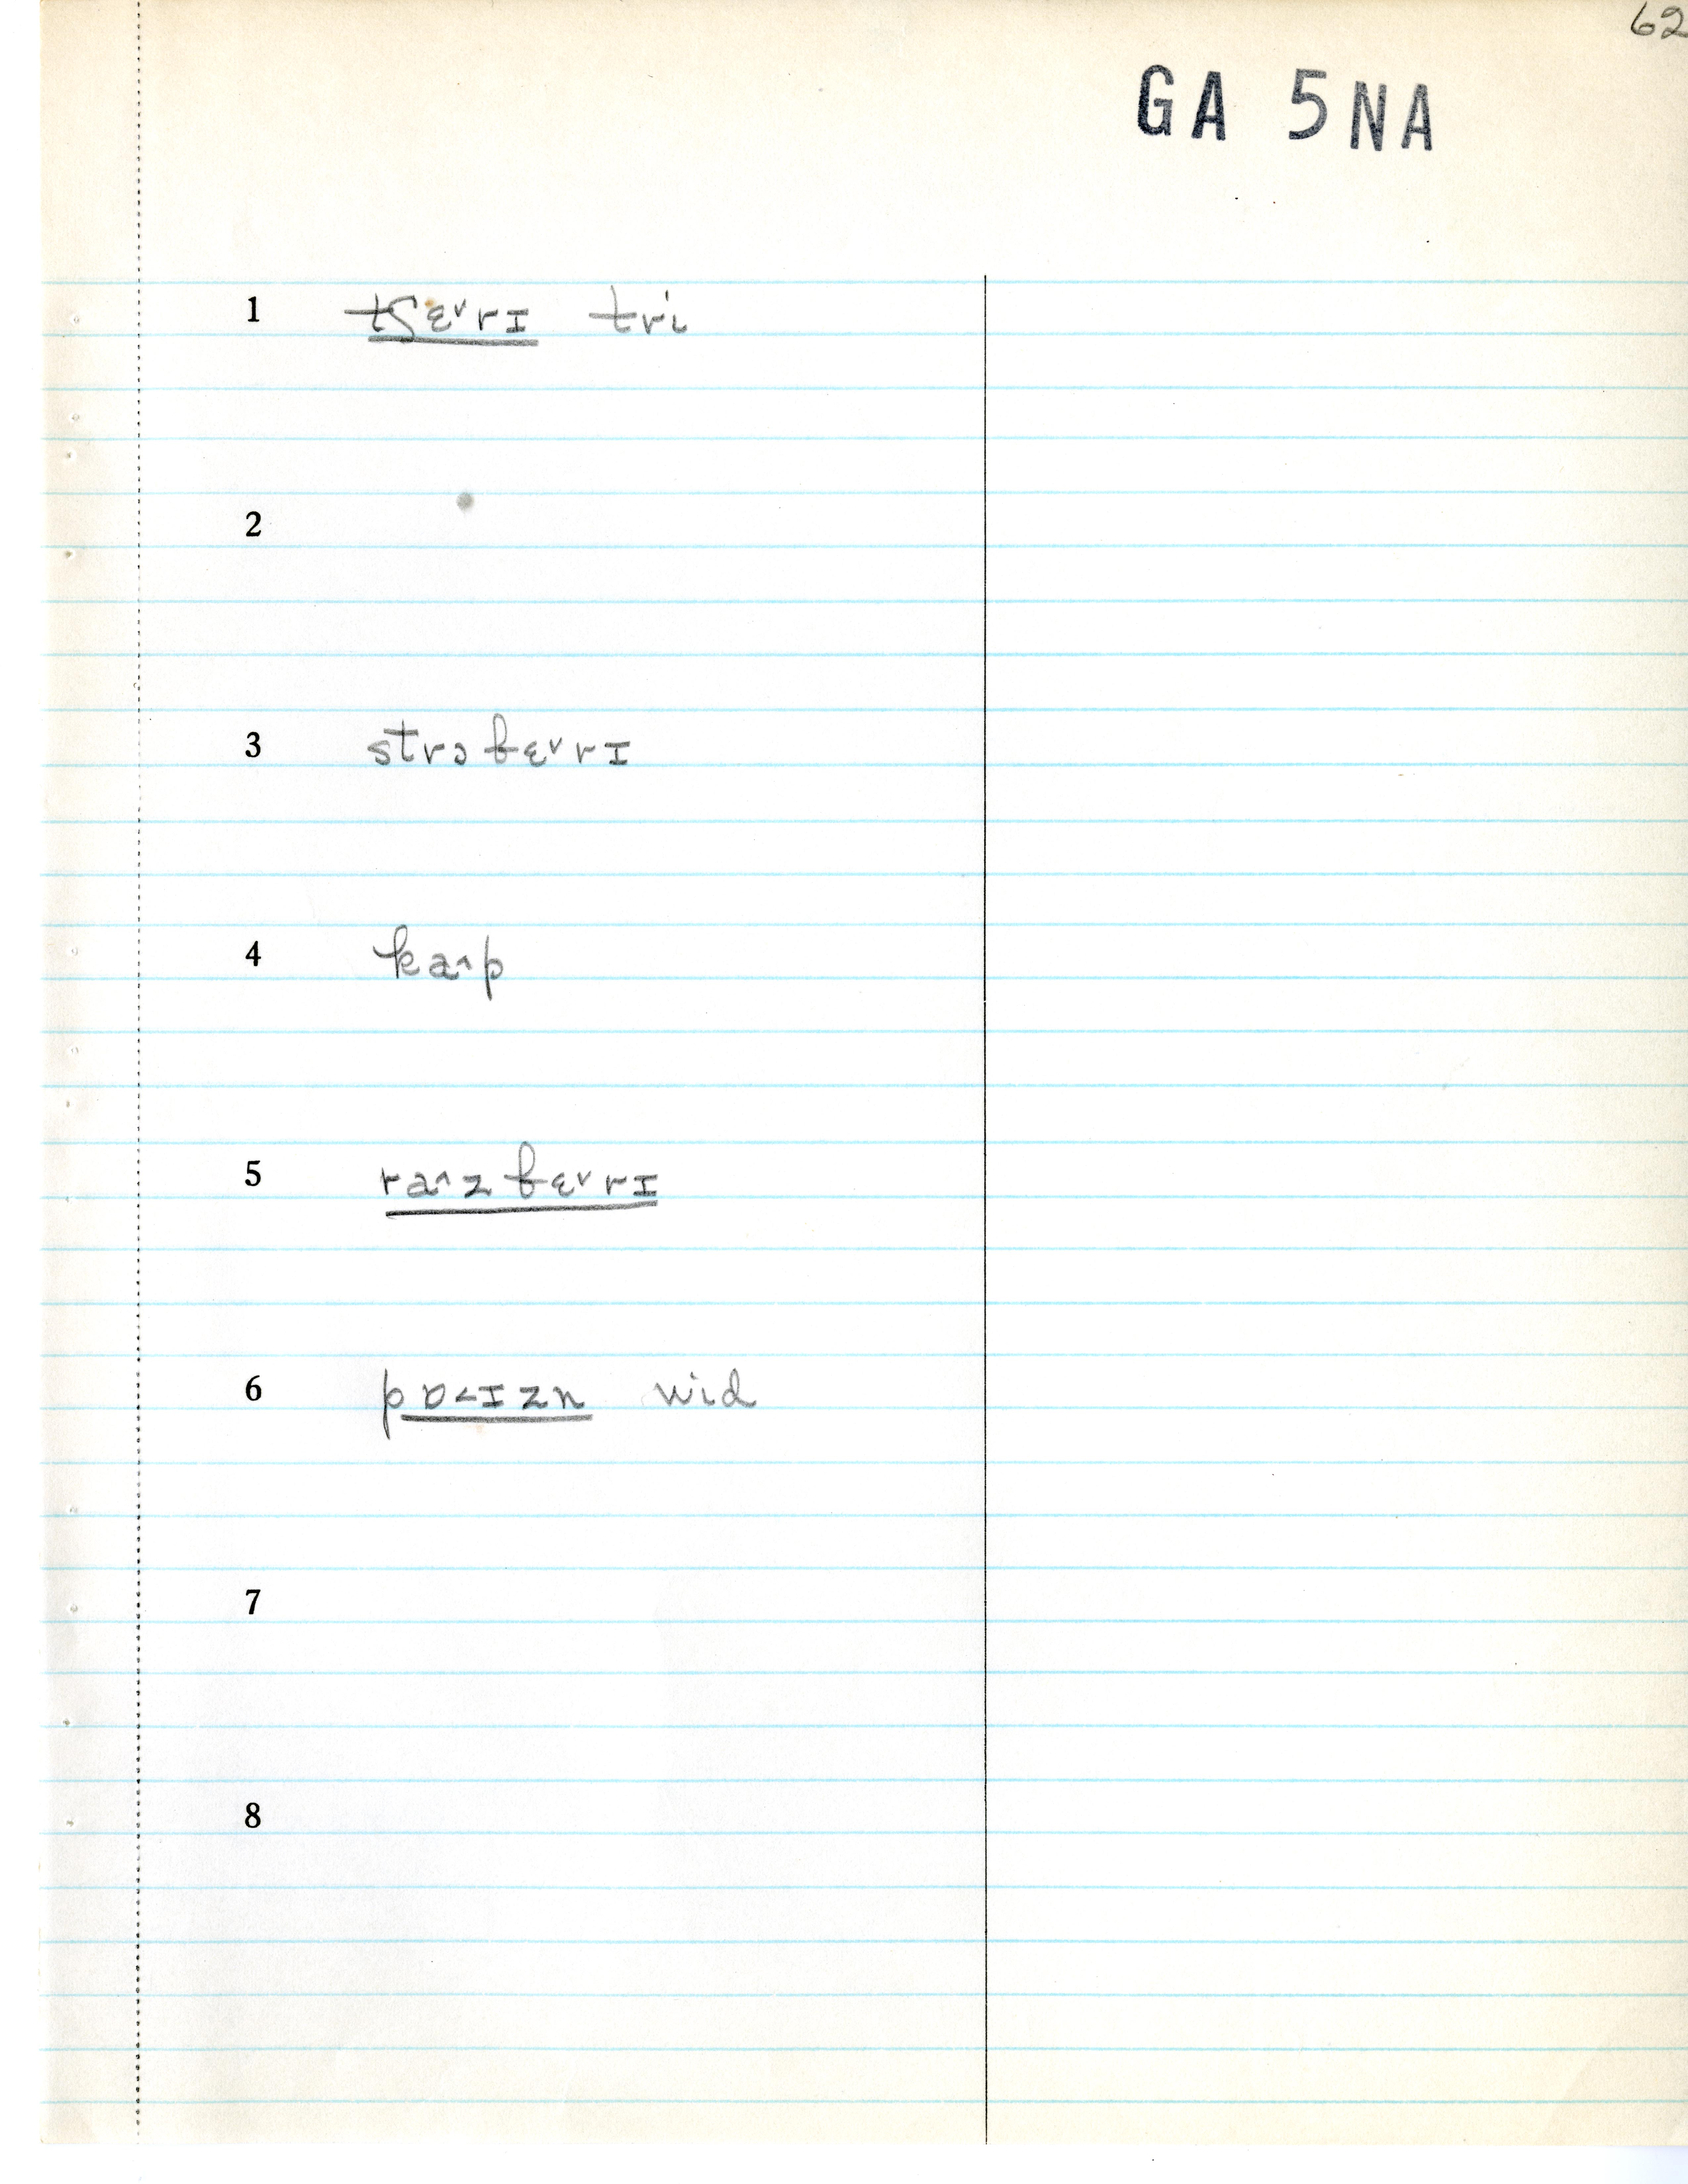 62
GA 5NA
1 tʃɛ˅rɪ tri
2
3 strɔbɛ˅rɪ
4 ka˄p
5 ra˄zbɛ˅rɪ
6 pɒ˂ɪzn wid
7
8